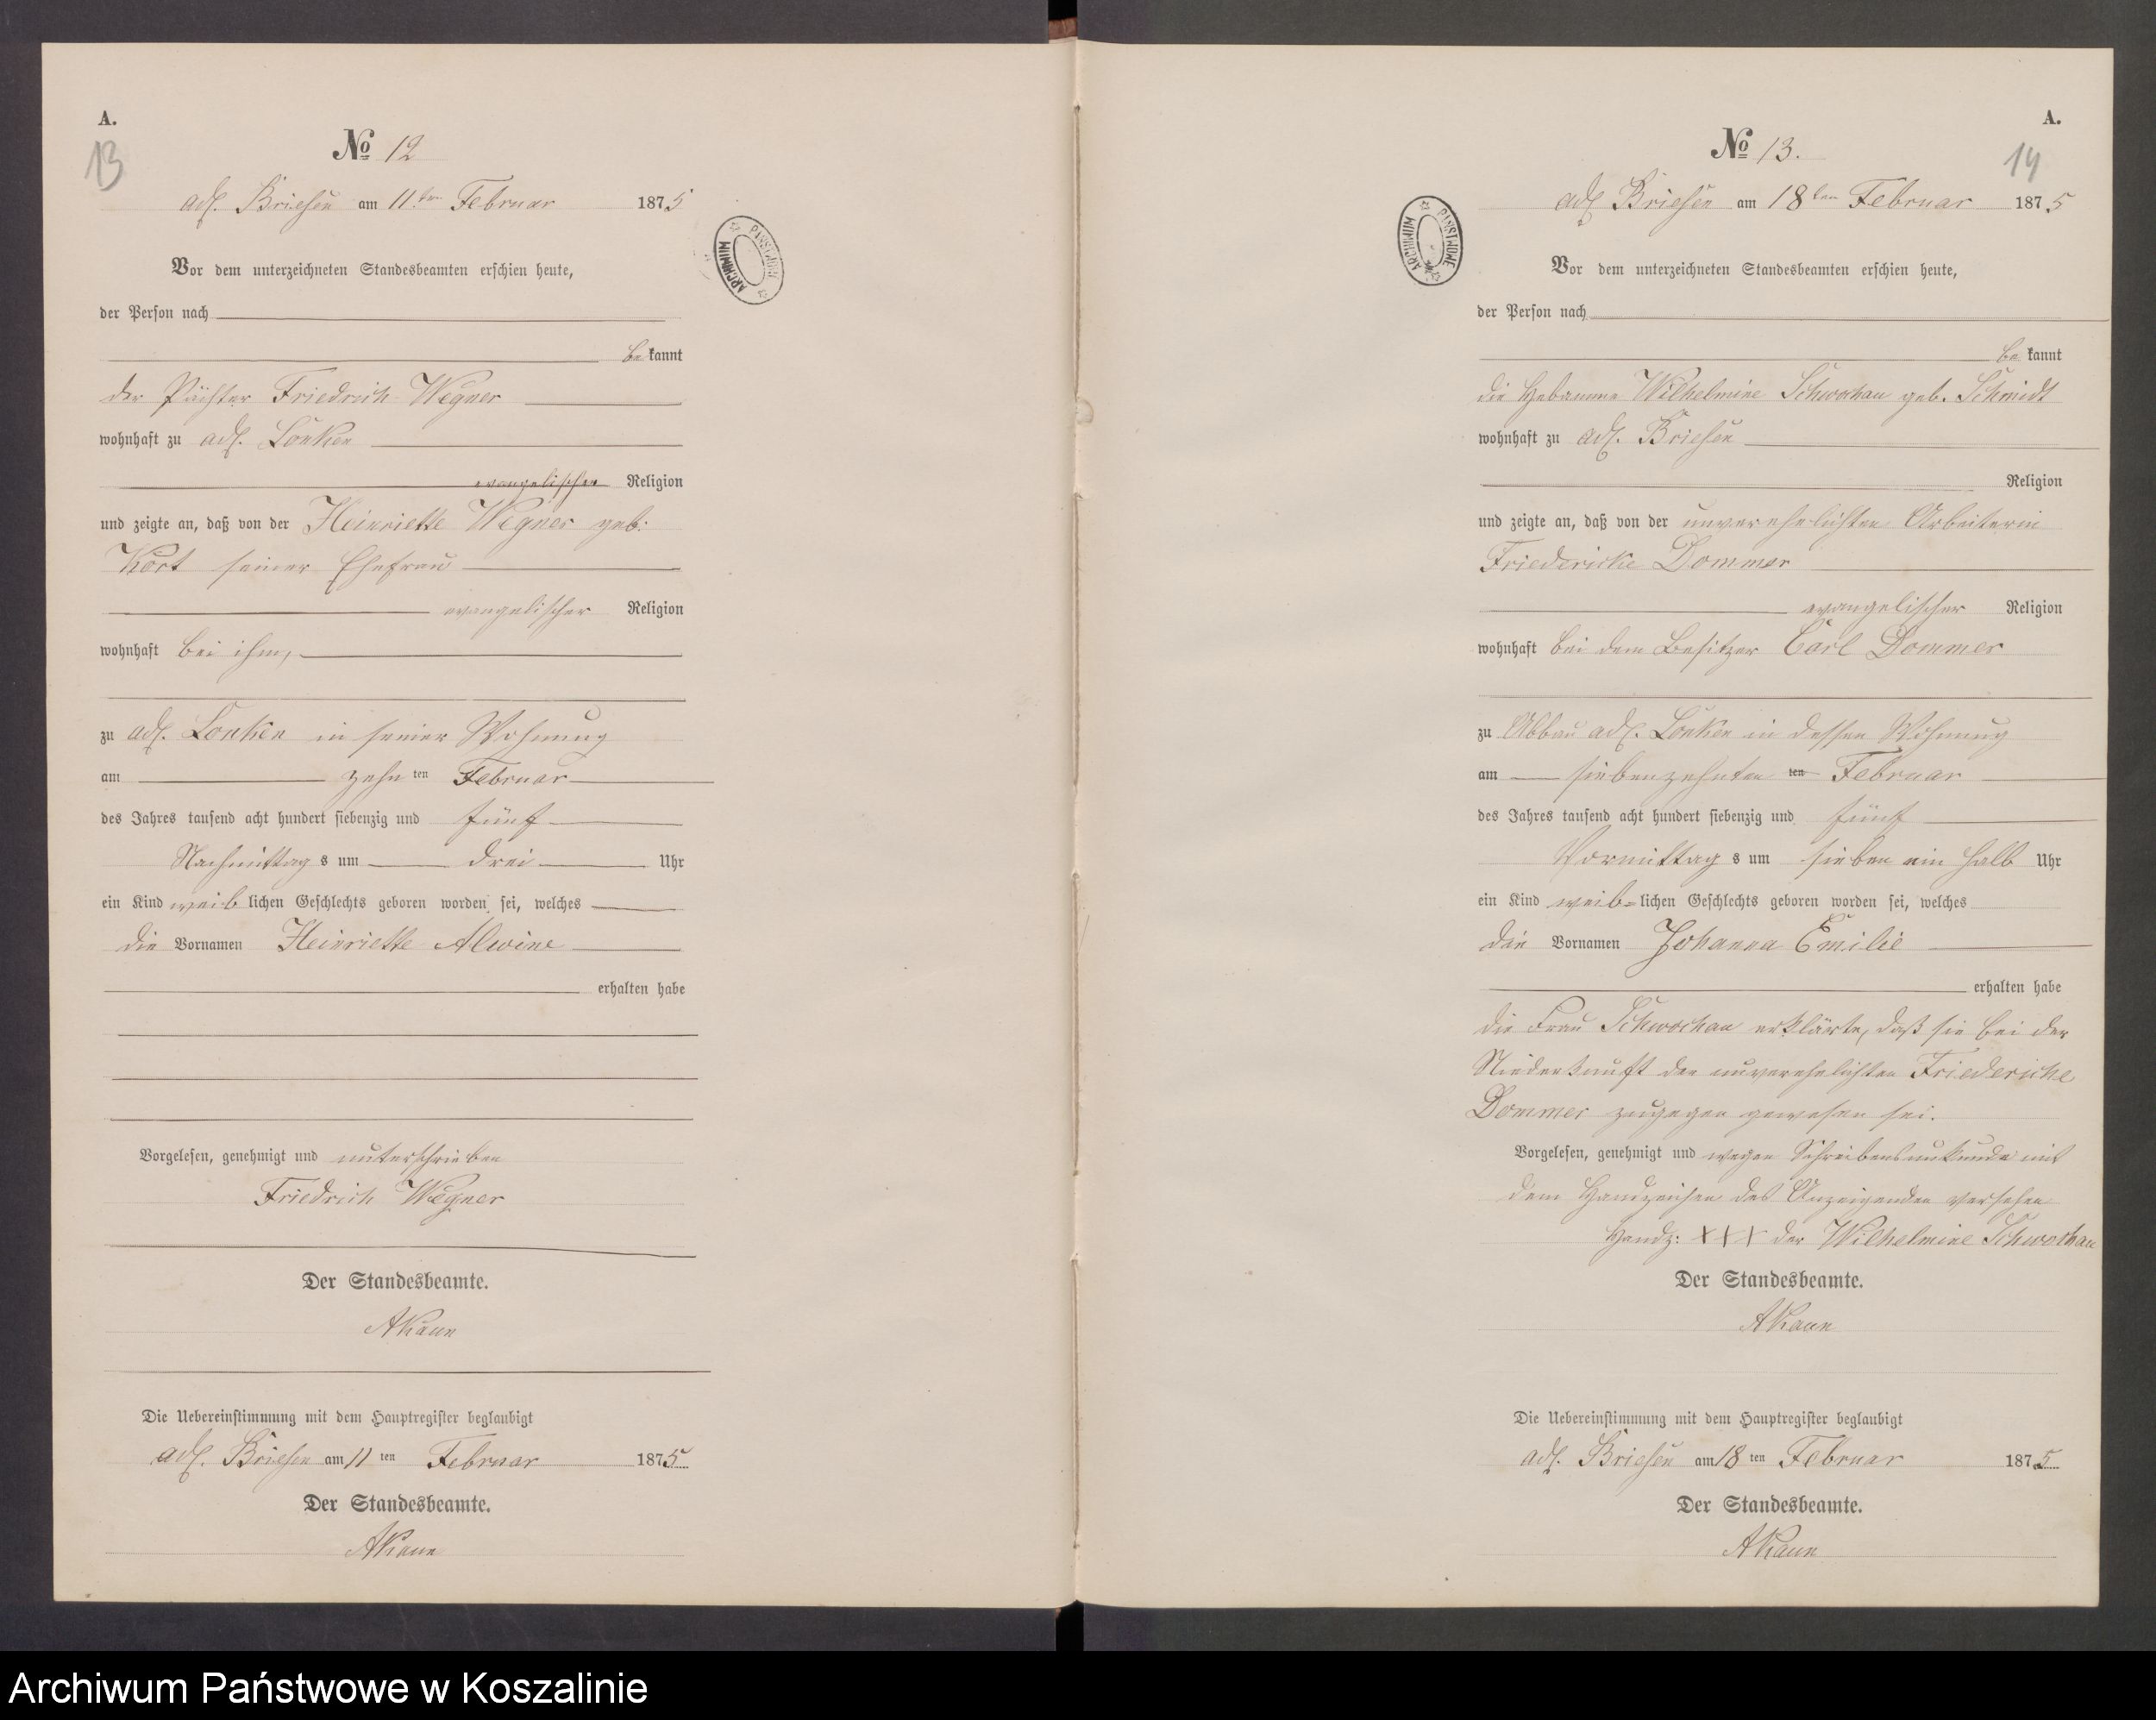 A.
13
No 12
adl. Briesen am 11ten Februar 1875
Vor dem unterzeichneten Standesbeamten erschien heute,
der Person nach
be kannt
der Pächter Friedrich Wegner
wohnhaft zu adl. Lonken
evangelischer Religion
und zeigte an, daß von der Heinriette Wegner geb:
Kort seiner Ehefrau
evangelischer Religion
wohnhaft bei ihm,
zu adl. Lonken in seiner Wohnung
am zehn ten Februar
des Jahres tausend acht hundert siebenzig und fünf
Nachmittag s um drei Uhr
ein Kind weib lichen Geschlechts geboren worden sei, welches
die Vornamen Heinriette Alwine
erhalten habe
Vorgelesen, genehmigt und unterschrieben
Friedrich Wegner
Der Standesbeamte.
AKaun
Die Uebereinstimmung mit dem Hauptregister beglaubigt
adl. Briesen am 11 ten Februar 1875
Der Standesbeamte.
AKaun
ARCHIWUM PAŃSTWOWE
A.
14
No 13.
adl Briesen am 18ten Februar 1875
Vor dem unterzeichneten Standesbeamten erschien heute,
der Person nach
be kannt
die Hebamme Wilhelmine Schwochau geb. Schmidt
wohnhaft zu adl. Briesen
Religion
und zeigte an, daß von der unverehelichten Arbeiterin
Friedericke Dommer
evangelischer Religion
wohnhaft bei dem Besitzer Carl Dommer
zu Abbau adl. Lonken in dessen Wohnung
am siebenzehnten ten Februar
des Jahres tausend acht hundert siebenzig und fünf
Vormittag s um sieben ein halb Uhr
ein Kind weib= lichen Geschlechts geboren worden sei, welches
die Vornamen Johanna Emilie
erhalten habe
die Frau Schwochau erklärte, daß sie bei der
Niederkunft der unverehelichten Friedericke
Dommer zugegen gewesen sei.
Vorgelesen, genehmigt und wegen Schreibensunkunde mit
dem Handzeichen des Anzeigenden versehen
Handz: XXX der Wilhelmine Schwochau
Der Standesbeamte.
AKaun
Die Uebereinstimmung mit dem Hauptregister beglaubigt
adl. Briesen am 18 ten Februar 1875
Der Standesbeamte.
AKaun
ARCHIWUM PAŃSTWOWE
Archiwum Państwowe w Koszalinie